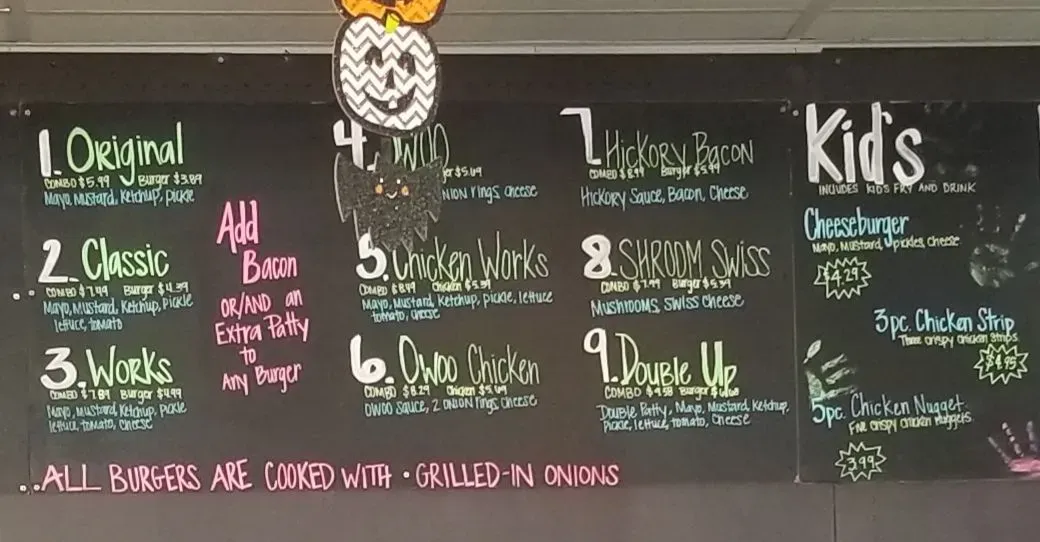 1. Original
COMBO $5.99 Burger $3.89
Mayo, Mustard, Ketchup, pickle
2. Classic
COMBO $7.49 Burger $4.39
Mayo, Mustard, Ketchup, Pickle
lettuce, tomato
3. Works
COMBO $7.89 Burger $4.99
Mayo, Mustard, Ketchup, Pickle
lettuce, tomato, cheese
Add
Bacon
OR/AND an
Extra Patty
to
Any Burger
4. OWOO
$5.69
ONION rings, cheese
5. Chicken Works
COMBO $8.49 Chicken $5.39
Mayo, Mustard, Ketchup, pickle, lettuce
tomato, cheese
6. Owoo Chicken
COMBO $8.29 Chicken $5.49
OWOO sauce, 2 ONION rings, cheese
7 Hickory Bacon
COMBO Burger
Hickory Sauce, Bacon, Cheese
8. SHROOM SWISS
COMBO $7.99 Burger $5.39
Mushrooms, Swiss cheese
9. Double Up
COMBO Burger
Double Patty, Mayo, Mustard, Ketchup,
Pickle, lettuce, tomato, Cheese
..ALL BURGERS ARE COOKED WITH • GRILLED-IN ONIONS
Kid's
INCLUDES KID'S FRY AND DRINK
Cheeseburger
Mayo, Mustard, pickles, cheese
$4.29
3pc. Chicken Strip
Three crispy chicken strips
$4.95
5pc. Chicken Nugget
Five crispy chicken nuggets
3.99